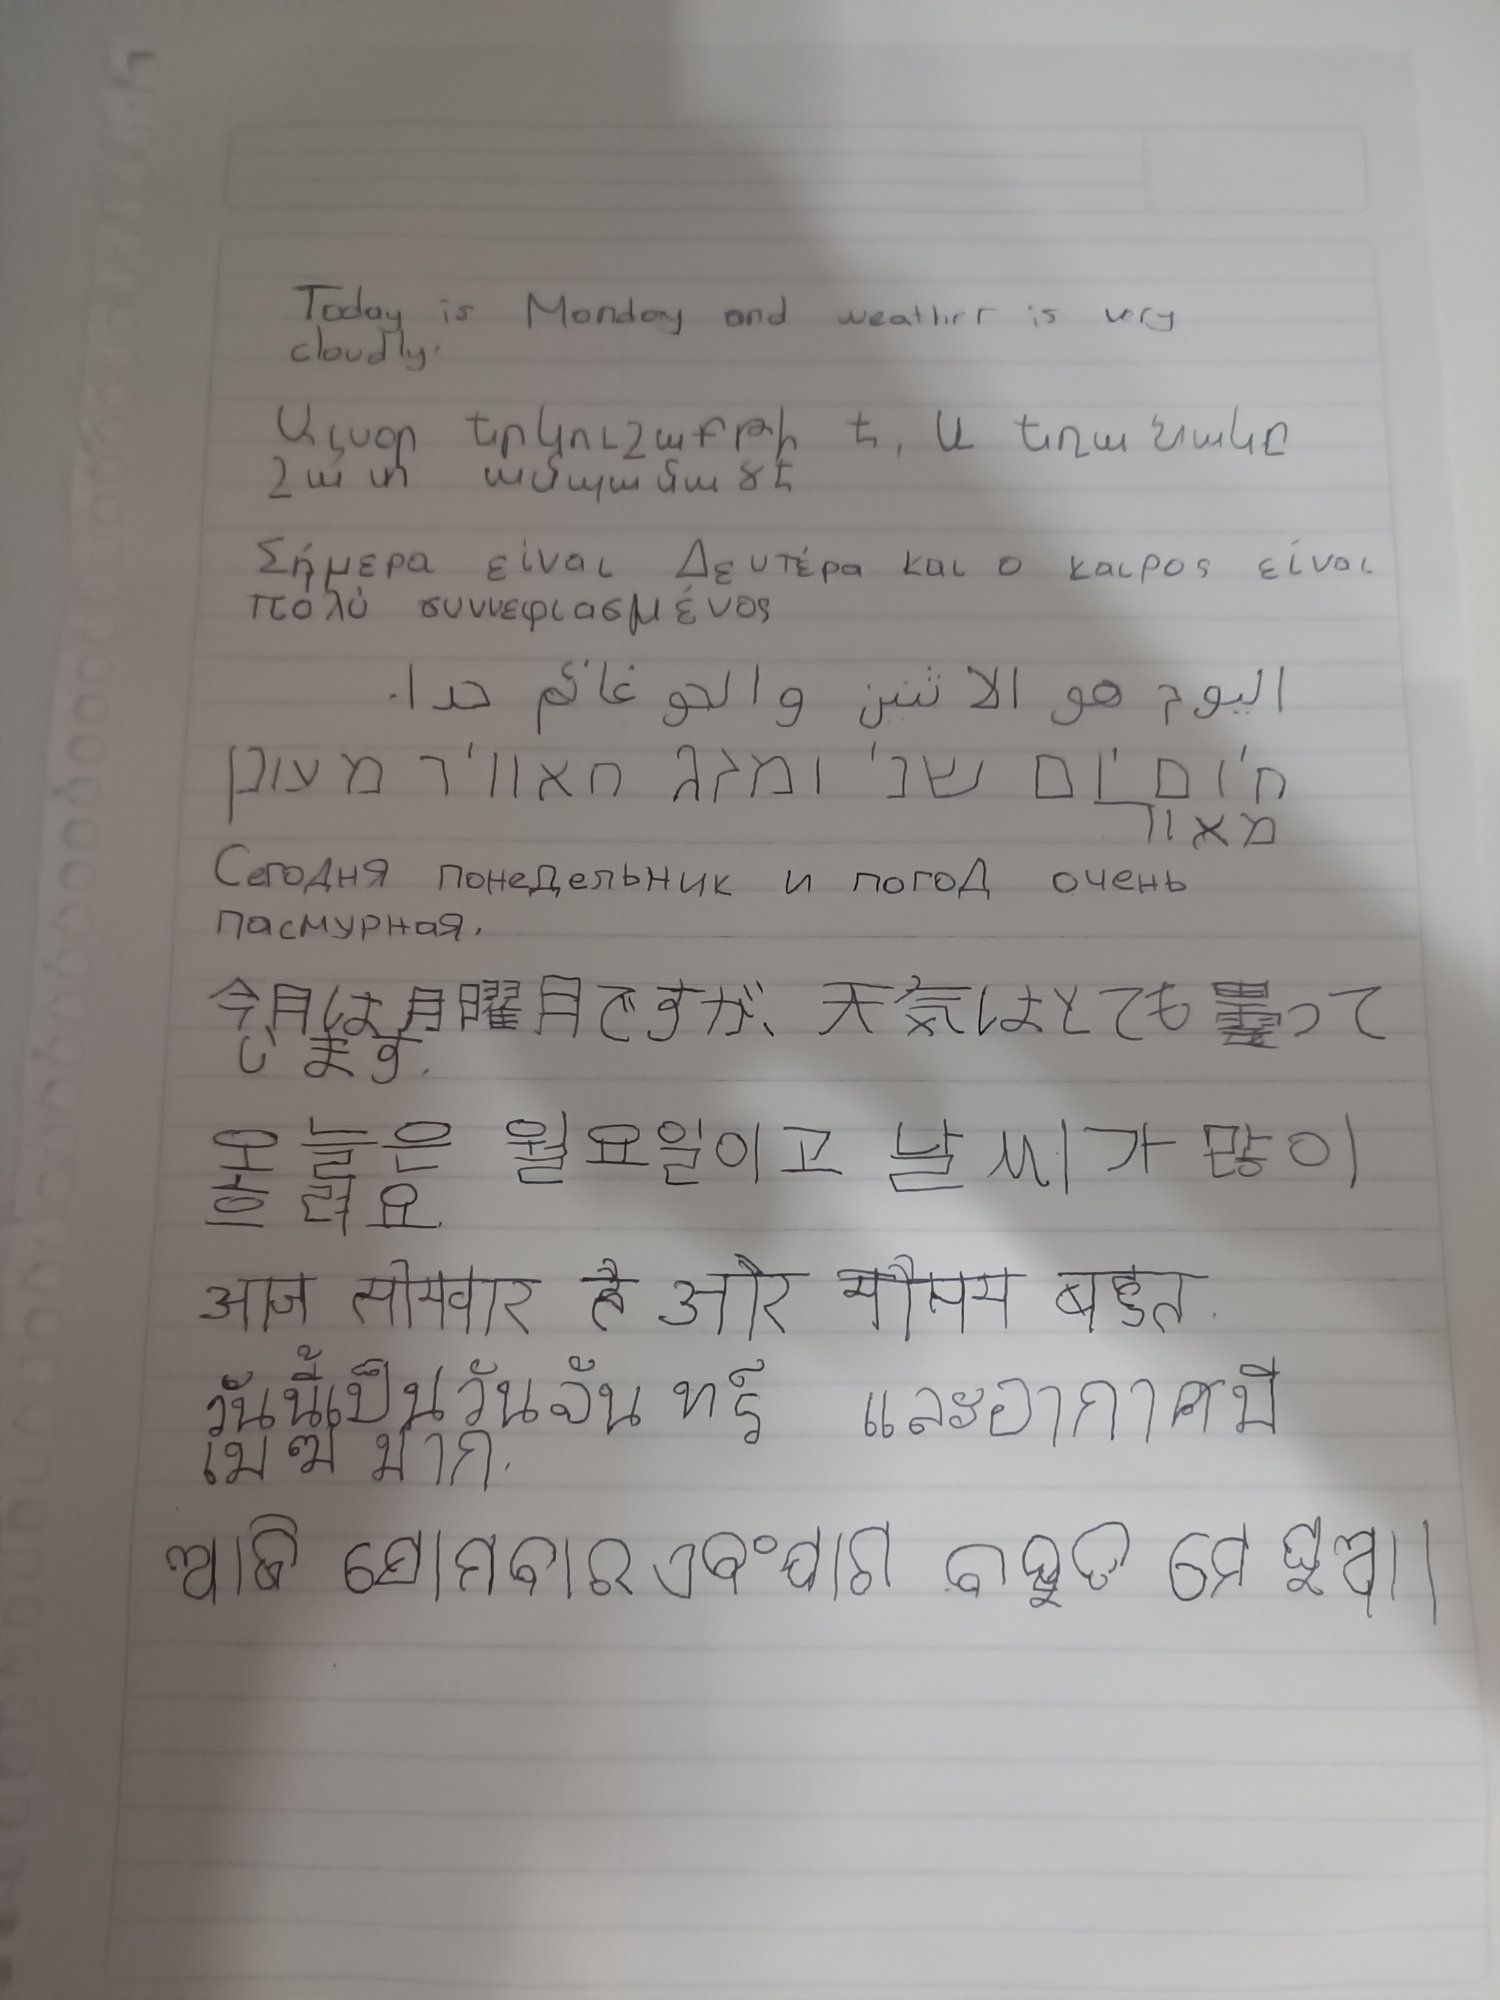 Today is Monday and weather is very
cloudly.
Այսօր երկուշաբթի է, և եղանակը
շատ ամպամած է
Σήμερα είναι Δευτέρα και ο καιρος είναι
πολύ συννεφιασμένος
اليوم هو الاثنين والجو غائم جدا.
היום יום שני ומזג האוויר מעונן
מאוד
Сегодня понедельник и погод очень
пасмурная.
今日は月曜日ですが、天気はとても曇って
います.
오늘은 월요일이고 날씨가 많이
흐려요.
आज सोमवार है और मौसम बहुत.
วันนี้เป็นวันจันทร์ และอากาศมี
เมฆมาก.
ଆଜି ସୋମବାର ଏବଂ ପାଗ ବହୁତ ମେଘୁଆ।